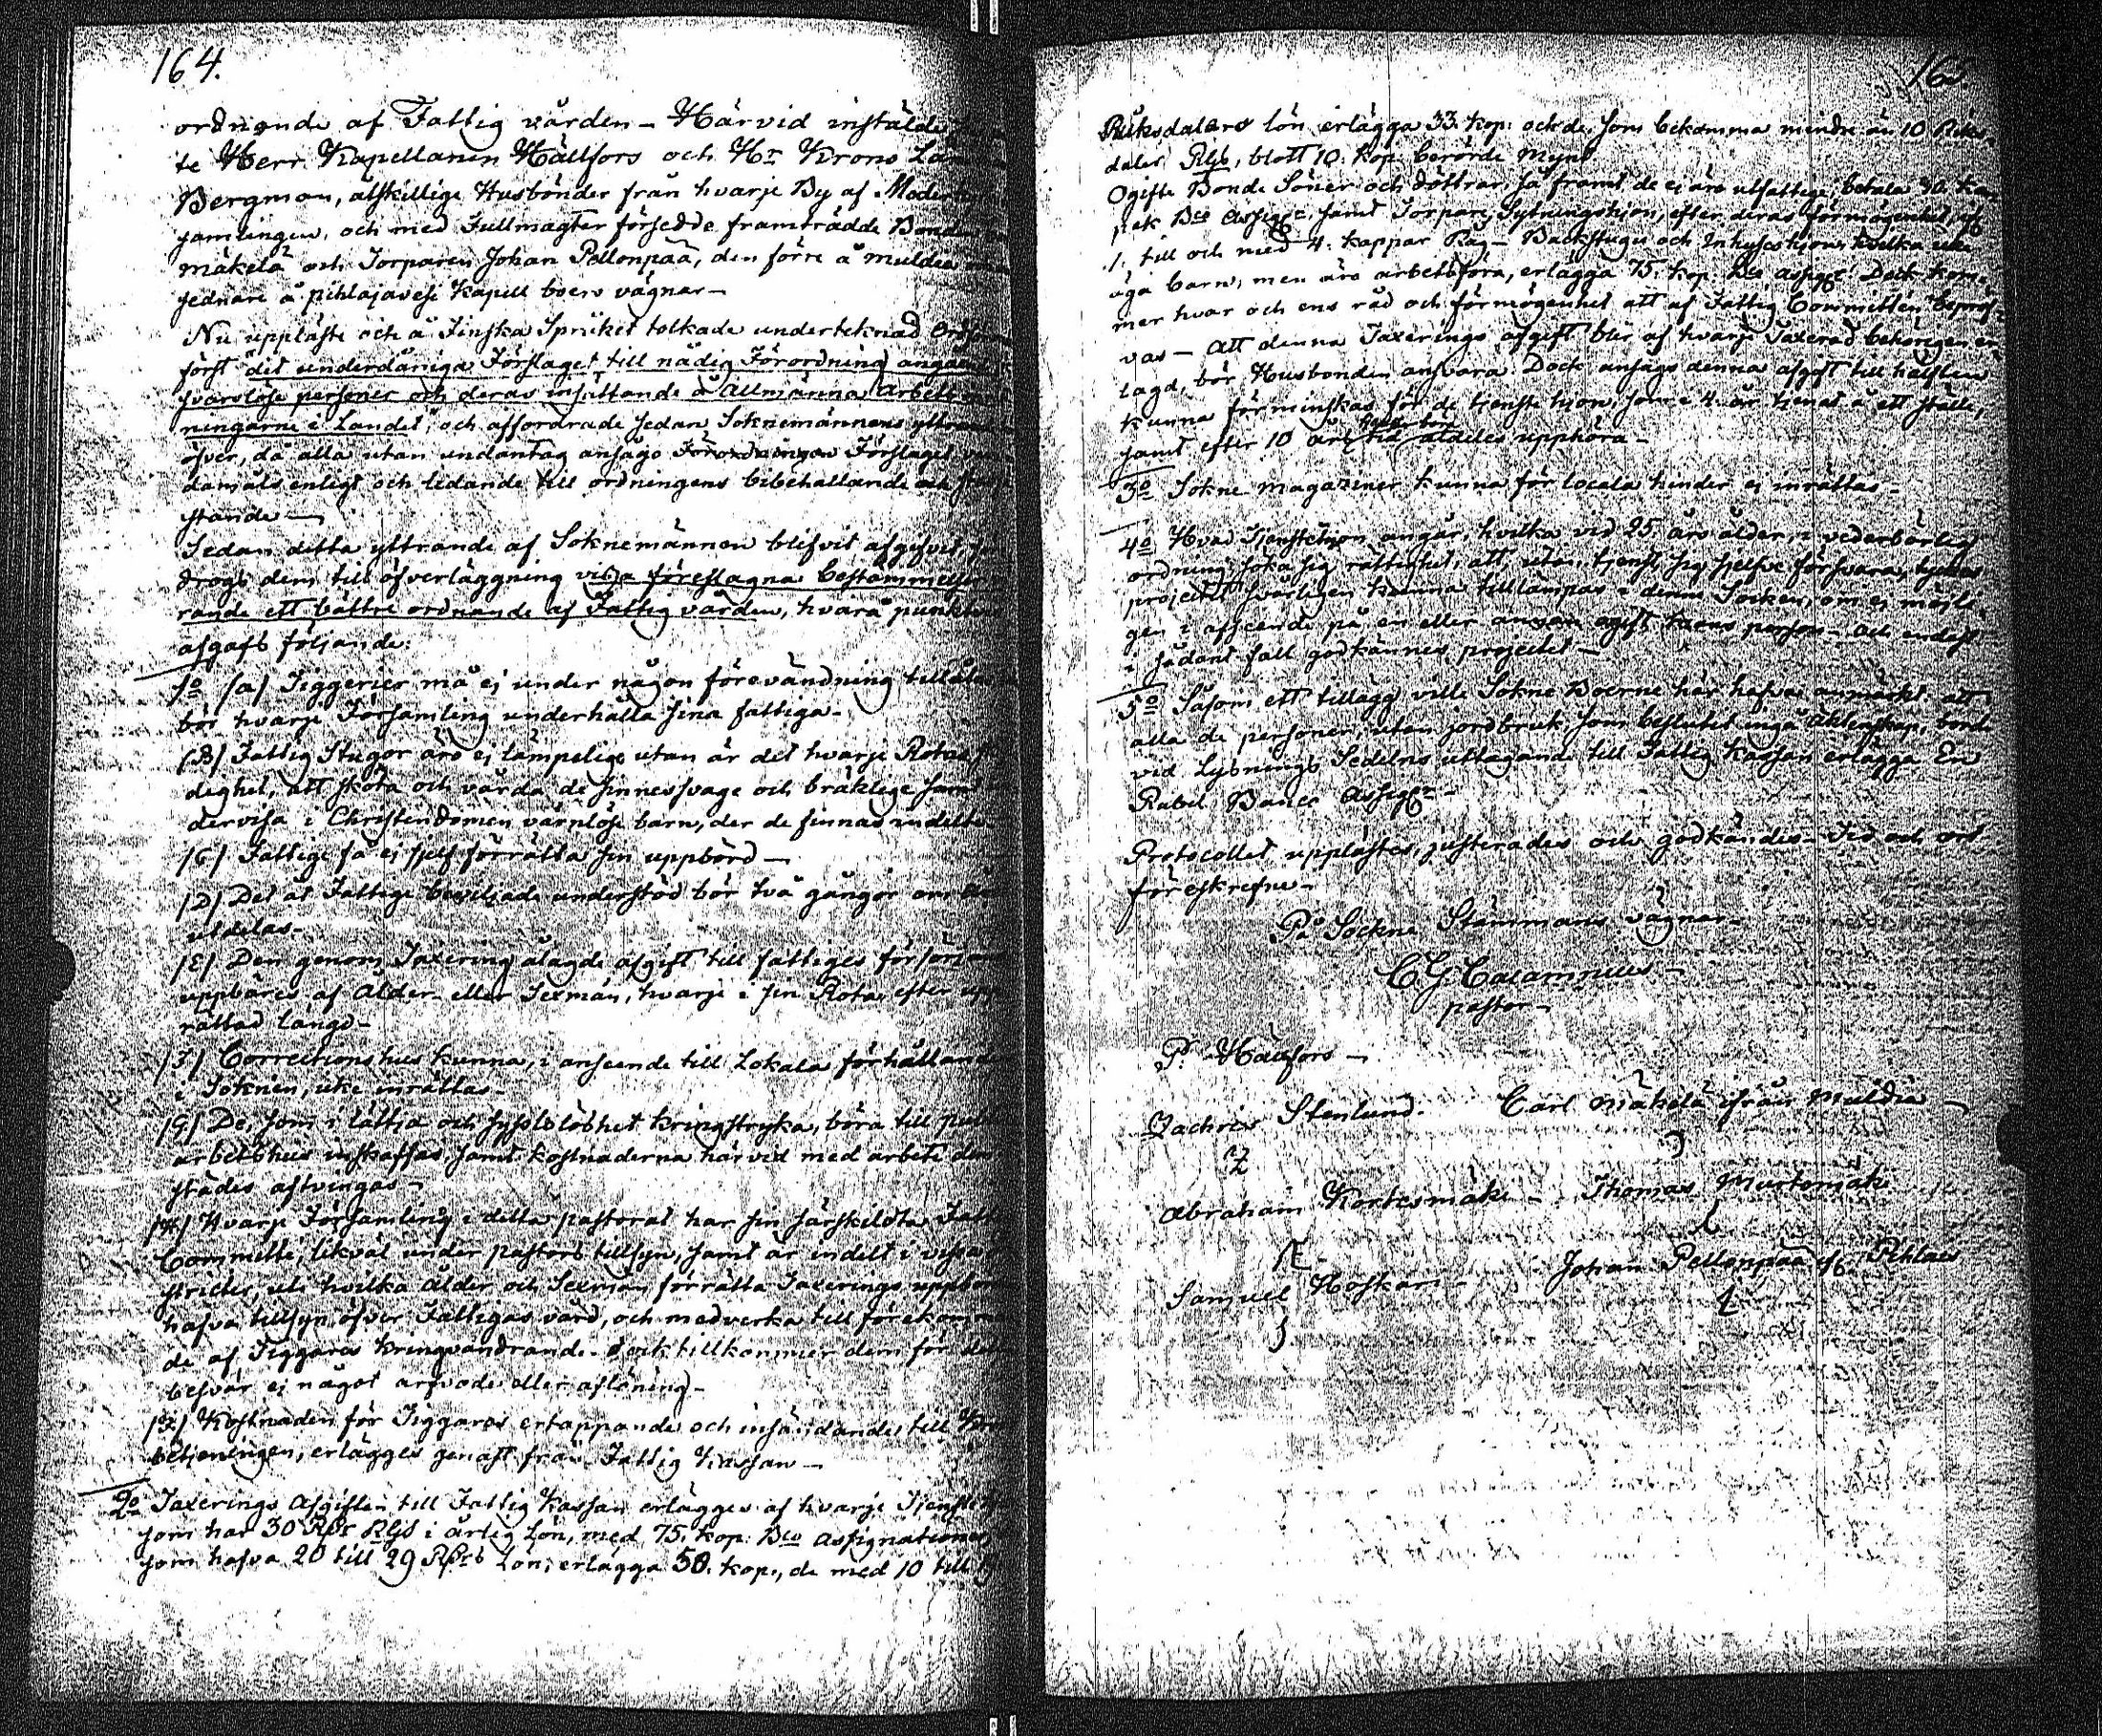 164.
ordnande af Fattig vården - Härvid instälde
te Herr Kapellanen Hällfors och Hr Krono Län
Bergman, åtskillige Husbönder från hvarje By af Moder
samlingen, och med Fullmagter försedde framträdde Bonden
mäkelä och Torparen Johan Pellonpää, den förre å muldia
sednare å pihlajavesi Kapell boers vägnar -
Nu uppläste och å Finska Språket tolkade undertecknad Ordför
först det underdåniga Förslaget till nådig Förordning angående
försvarslöse personer och deras insättande å Allmänna arbets
ningarne i Landet, och affordrade sedan Soknemännens yttrande
öfver, då alla utan undantag ansågo Förordningen Förslaget
damåls enligt och ledande till ordningens bibehållande och
stande -
Sedan detta yttrande af Soknemännen blifvit afgifvet,
drogs dem till öfverläggning vissa föreslagna bestämmelser
rande ett bättre ordnande af Fattig vården, hvarå punktvis
afgafs följande:
1o /a/ Tiggerier må ej under någon förevändning tillåtas
bör hvarje Församling underhålla sina fattiga -
/B/ Fattig Stugor äro ej lämpelige utan är det hvarje Rotas
dighet, att sköta och vårda de sinnessvage och bräklige samt
dervisa i Christendomen värnlöse barn, der de finnas indelta
/C/ Fattige få ej sjelf förrätta sin uppbörd -
/D/ Det åt Fattige beviljade understöd bör två gångor om
utdelas -
/E/ Den genom Taxering ålagde afgift till fattiges försörj
uppbäres af Ålder- eller Sexmän, hvarje i sin Rota, efter upp
rättad längd -
/F/ Corrections hus kunna, i anseende till Lokala förhålland
i Soknen, icke inrättas -
/G/ De, som i lättja och sysslolöshet kringstryka, böra till
arbetshus inskaffas, samt kostnaderna härvid med arbete der
städes aftvingas -
/H/ Hvarje Församling i detta pastorat har sin särskildta Fatt
Committé, likväl under pastors tillsyn, samt är indelt i vissa
stricter, uti hvilka Ålder och Sexmän förrätta Taxerings uppbörd
hafva tillsyn öfver Fattigas vård, och medverka till förekomm
de af Tiggares kringvandrande. Dock tillkommer dem för det
besvär ej något arfvode eller aflöning -
/I/ Kostnaden för Tiggares ertappande och insändande till
betjeningen, erlägges genast från Fattig Kassan -
2o Taxerings Afgiften till Fattig Kassan erlägges af hvarje Tjenste
som har 30 Rdr Rgs i årlig Lön, med 75. kop. Bco Assignationer
som hafva 20 till 29 Rdrs Lön, erlägga 50. kop., de med 10 till
165.
Riksdalers lön erlägga 33. kop. och de som bekomma mindre än 10 Riks-
daler Rgs, blott 10. kop. berörde mynt
Ogifte Bonde Söner och döttrar, så framt de ej äro utfattige, betala 30. ko-
pek Bco Assigr. samt Torpare, Sytningshjon, efter deras förmögenhet,
1. till och med 4. kappar Råg - Backstugu och Inhyses hjon, hvilka icke
äga barn, men äro arbetsföra, erlägga 75. kop. Bco assigr. Dock kom-
mer hvar och ens råd och förmögenhet att af Fattig Committén bepröf-
vas - Att denna Taxerings afgift blir af hvarje Taxerad behörigen er-
lagd, bör Husbonden ansvara. Dock ansågs denna afgift till hälften
kunna förminskas för de tjenste hjon, som i 4. år tjenat å ett ställe,
samt efter 10 års tid aldeles upphöra -
3o Sokne magaziner kunna för locala hinder ej inrättas -
4o Hvad Tjenstehjon angår, hvilka vid 25. års ålder, i vederbörlig
ordning söka sig rättighet, att, utan tjenst, sig sjelfve försvara, tyckes
projectet svårligen kunna tillämpas i denna Socken, om ej möjli-
gen i afseende på en eller annan ogift person - och endast
i sådant fall godkännes projectet -
5o Såsom ett tillägg ville Sokne Boerne här hafva anmärkt att
alla de personer, utan jordbruk, som beslutit ingå äktenskap, borde
vid Lysnings Sedelns uttagande till Fattig Kassan erlägga En
Rubel Banco Assigr. -
Protocollet upplästes, justerades och godkändes - Tid och ort
föreskrefne -
På Sockne Stämmans vägnar -
C. G. Calamnius -
pastor -
P. Hällfors -
Zachris Stenlund. Carl Mäkelä ifrån Muldia -
Abraham Kortesmäki - Thomas Murtomäki
Samuel Koskari - Johan Pellonpää if. Pihlais